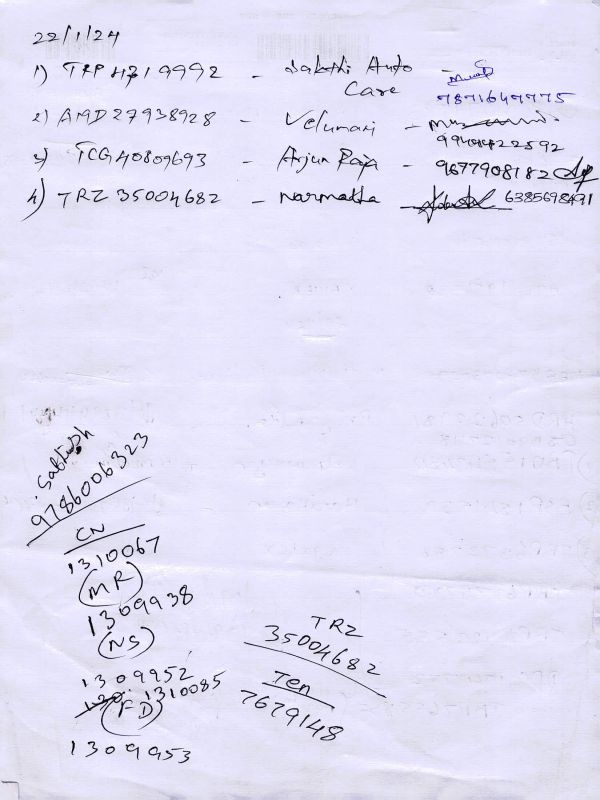 22/1/24
1) TRP 47219992 - Sakthi Auto Care -
7871647775
2) AMD 27938928 - Velumari -
9944422592
3) TCG 40809693 - Arjun Raja - 9677908182
4) TRZ 35004682 - Narmatha 6385698491
Sathish
9786006323
CN
1310067
(MR)
1309938
(NS)
1309952
1310085
(FD)
1309953
TRZ
35004682
Ten
7679148